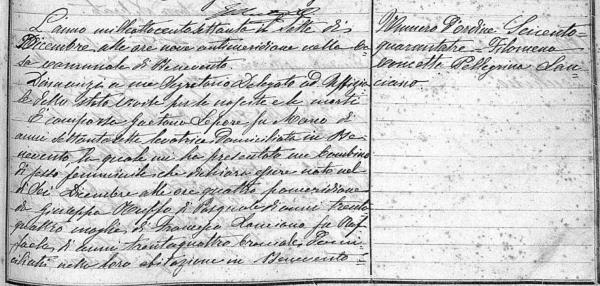 L'anno milleottocentottanta il sette di
Dicembre alle ore nove antimeridiane nella Ca
sa comunale di Benevento
Dinanzi a me Segretario Delegato ad Uffizia
le dello Stato Civile per le nascite e le morti
È comparsa Gaetana Lepore fu Marco di
anni settantasette levatrice domiciliata in Be
nevento, la quale mi ha presentato un bambino
di sesso femminile che dichiara essere nato nel
dì sei Dicembre alle ore quattro pomeridiane
da Giuseppa Zuffo di Pasquale di anni trenta
quattro moglie di Francesco Lanciano fu Raf
faele di anni trentaquattro bracciale, domi
ciliati nella loro abitazione in Benevento=
Numero d'ordine Seicento-
quarantatre = Filomena
Concetta Pellegrina Lan-
ciano